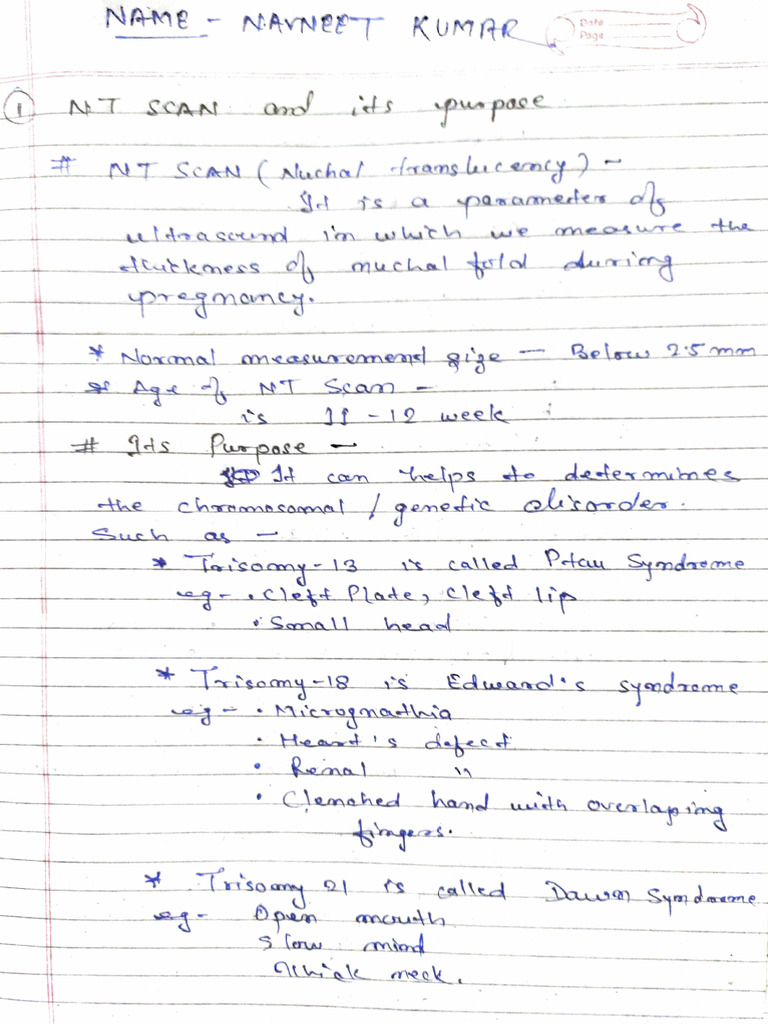 NAME - NAVNEET KUMAR
Date
Page
① NT SCAN and its purpose
# NT SCAN (Nuchal translucency) -
It is a parameter of
ultrasound in which we measure the
thickness of nuchal fold during
pregnancy.
* Normal measurement size - Below 2.5 mm
* Age of NT Scan -
is 11 - 12 week
# Its Purpose -
It can helps to determines
the chromosomal / genetic disorder.
Such as -
* Trisomy-13 is called Patau Syndrome
eg - • Cleft Plate, cleft lip
• Small head
* Trisomy-18 is Edward's syndrome
eg - • Micrognathia
• Heart's defect
• Renal "
• Clenched hand with overlaping
fingers.
* Trisomy 21 is called Dawn Syndrome
eg - Open mouth
Slow mind
Thick neck.